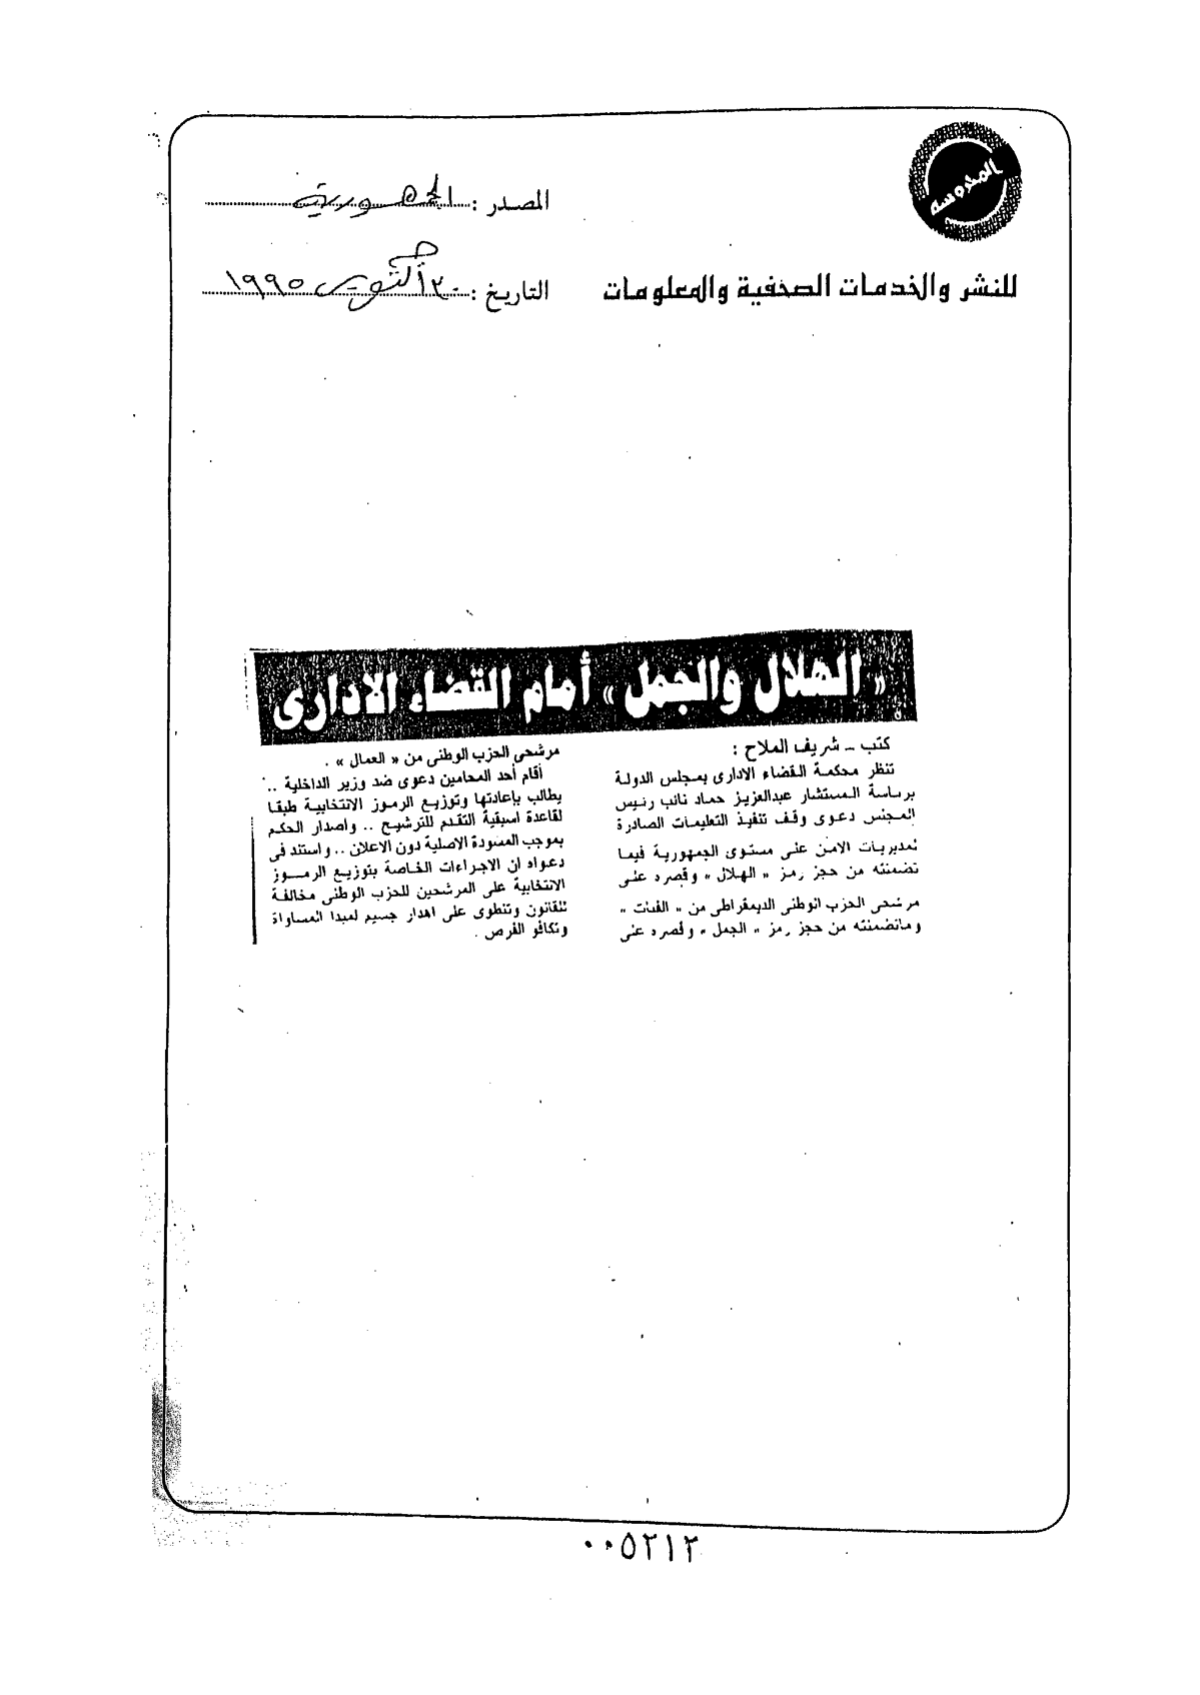 المحروسة
المصدر : الجمهورية
للنشر والخدمات الصحفية والمعلومات
التاريخ : ٣٠ أكتوبر ١٩٩٥
« الهلال والجمل » أمام القضاء الادارى
كتب - شريف الملاح :
تنظر محكمة القضاء الادارى بمجلس الدولة
برئاسة المستشار عبدالعزيز حماد نائب رئيس
المجلس دعوى وقف تنفيذ التعليمات الصادرة
لمديريات الامن على مستوى الجمهورية فيما
تضمنته من حجز رمز « الهلال » وقصره على
مرشحى الحزب الوطنى الديمقراطى من « الفئات »
وماتضمنته من حجز رمز « الجمل » وقصره على
مرشحى الحزب الوطنى من « العمال » .
أقام أحد المحامين دعوى ضد وزير الداخلية ..
يطالب بإعادتها وتوزيع الرموز الانتخابية طبقا
لقاعدة اسبقية التقدم للترشيح .. واصدار الحكم
بموجب المسودة الاصلية دون الاعلان .. واستند فى
دعواه ان الاجراءات الخاصة بتوزيع الرمـوز
الانتخابية على المرشحين للحزب الوطنى مخالفة
للقانون وتنطوى على اهدار جسيم لمبدا المساواة
وتكافؤ الفرص .
٠٠٥٢١٢